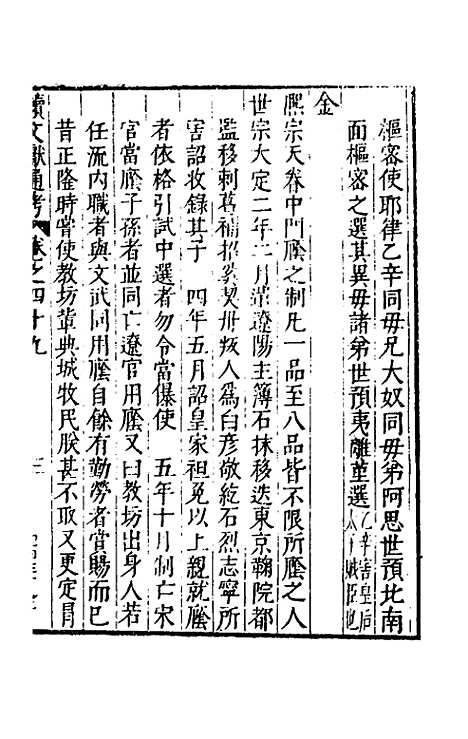 樞密使耶律乙辛同毋兄大奴同毋弟阿思世預北南
面樞密之選其異毋諸弟世預夷离堇選
金
熙宗天眷中門廕之制凡一品至八品皆不限所廕之人
世宗大定二年二月諸遼陽主簿石抹移迭東京麴院都
監移剌葛補招契丹叛人為白彦敬紇石烈志寧所
害詔收錄其子　四年五月詔皇家袒免以上親就廕
者依格引試中選者勿令當儤使　五年十月制亡宋
官當廕子孫者並同亡遼官用廕又曰教坊出身人若
任流内職者與文武同用廕自餘有勤勞者賞賜而已
昔正隆時嘗使教坊輩典城牧民朕甚不取又更定冐
續文獻通考　卷之四十九